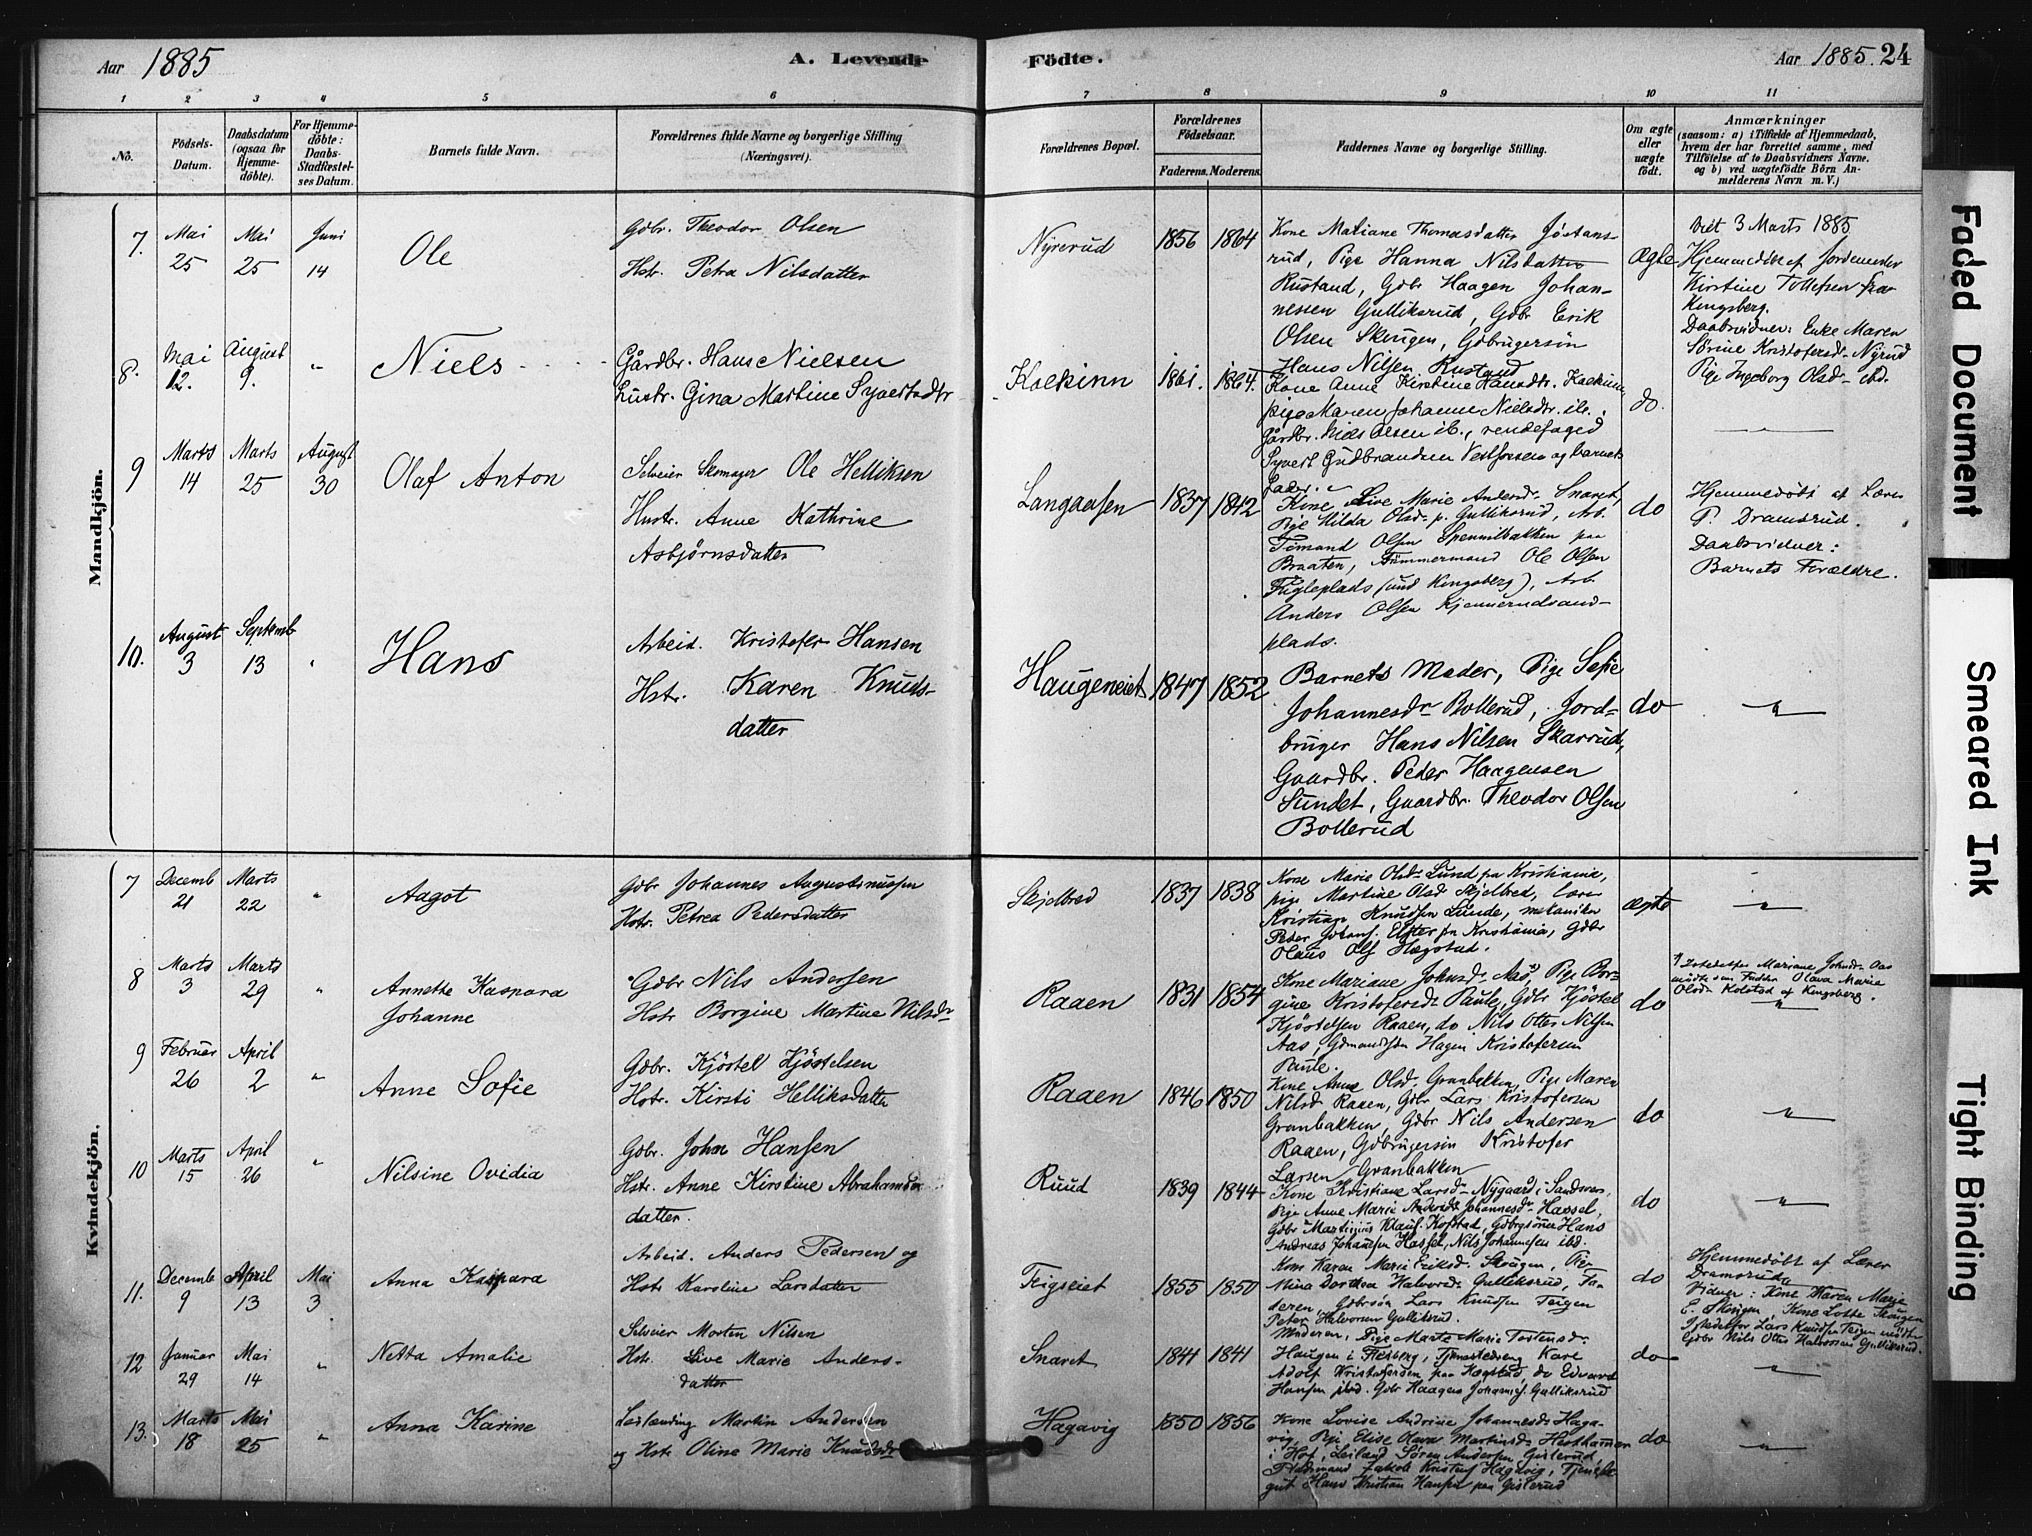 Aar 1885
A. Levende
Födte.
Aar 1885. 24
1 2 3 4 5 6 7 8 9 10 11
No.
Födsels-
Datum.
Daabsdatum
(ogsaa for
Hjemme-
döbte).
For Hjemme-
döbte:
Daabs-
Stadfæstel-
ses Datum.
Barnets fulde Navn.
Forældrenes fulde Navne og borgerlige Stilling
(Næringsvei).
Forældrenes Bopæl.
Forældrenes
Födselsaar.
Faderens. Moderens.
Faddernes Navne og borgerlige Stilling.
Om ægte
eller
uægte
födt.
Anmærkninger
(saasom: a) i Tilfælde af Hjemmedaab,
hvem der har forrettet samme, med
Tilföielse af to Daabsvidners Navne.
og b) ved uægtefödte Börn An-
melderens Navn m. V.)
Mandkjön.
7.
Mai
25
Mai
25
Juni
14
Ole
Gdbr. Theodor Olsen
Hstr. Petra Nilsdatter
Nyrerud
1856 1864
Kone Matiane Thomasdatter Jøstans-
rud, Pige Hanna Nilsdatter
Rustand, Gdbr Haagen Johan-
nessen Gulliksrud, Gdbr Erik
Olsen Skougen, Gdbrugersön
Hans Nilsen Rustand
Ægte
Viet 3 Marts 1885
Hjemmedöbt af Jordemoder
Kirstine Tollefsen fra
Kongsberg.
Daabsvidner: Enke Maren
Sørine Kristofersd. Nyrud
Pige Ingeborg Olsd. ibd.
8.
Mai
12.
August
9.
"
Niels
Gårdbr. Hans Nielsen
Hustr. Gina Martine Syvertsdtr
Kolkinn
1861. 1864.
Kone Anne Kirstine Hansdtr. Kolkinn
pige Maren Johanne Nielsdtr. ib.
Gårdbr. Niels Olsen ib.,
Syvert Gudbrandsen Vestfossen og barnets
fader.
do.
9
Marts
14
Marts
25
August
30
Olaf Anton
Selveier Skomager Ole Helliksen
Hustr. Anne Kathrine
Asbjørnsdatter
Langaasen
1837 1842
Kone Live Marie Andersd. Snaret,
Pige Hilda Olsd. p. Gulliksrud, Arb.
Tömand Olsen Spennilbakken paa
Braaten, Tömmermand Ole Olsen
Fugleplads (und Kongsberg), Arb.
Anders Olsen Kjennerudsand-
plads.
do
Hjemmedöbt af Lærer
P. Dramsrud.
Daabsvidner:
Barnets Forældre.
10.
August
3
Septemb
13
"
Hans
Arbeid. Kristofer Hansen
Hstr. Karen Knuds-
datter
Haugeneiet
1847 1852
Barnets Moder, Pige Sofie
Johannesdr Bollerud, Jord-
bruger Hans Nilsen Skarrud,
Gaardbr. Peder Haagensen
Sundet, Gaardbr. Theodor Olsen
Bollerud
do
"
Kvindekjön.
7
Decemb
21
Marts
22
"
Aagot
Gdbr Johannes Augustinussen
Hstr. Petrea Pedersdatter
Skjelbred
1837 1838
Kone Marie Olsdr Lund fra Kristiania,
pige Martine Olsd Skjelbred, Lærer
Kristian Knudsen Lunde, mekaniker
Peder Johans. Elster fra Kristiania, Gdbr
Olaus Ols Hægstad.
ægte
"
8
Marts
3
Marts
29
"
Annette Kaspara
Johanne
Gdbr Nils Andersen
Hstr Borgine Martine Nilsdr
Raaen
1831 1854
Kone Mariane Johnsdr Aas, Pige Bor-
gine Kristofersdr Paule, Gdbr Kjöstel
Kjöstelsen Raaen, do Nils Otter Nilsen
Aas, Gdmandssön Hagen Kristofersen
Paule.
do
Istedetfor Mariane Johnsdr Aas
mödte som Fadder Olava Marie
Olsdr Kolstad af Kongsberg.
"
9
Februar
26
April
2
"
Anne Sofie
Gdbr. Kjöstel Kjöstelsen
Hstr. Kirsti Helliksdatter
Raaen
1846 1850
Kone Anne Olsd. Granbakken, Pige Maren
Nilsd Raaen, Gdbr Lars Kristofersen
Granbakken, Gdbr Nils Andersen
Raaen, Gdbrugersön Kristofer
Larsen Granbakken
do
"
10
Marts
15
April
26
"
Nilsine Ovidia
Gdbr. John Hansen
Hstr. Anne Kirstine Abrahams-
datter.
Ruud
1839 1844
Kone Kristiane Larsd. Nygaard i Sandsvær,
Pige Anne Marie Johannesdr Hassel,
Gdbr Martinius Klaus. Kofstad, Gdbrgsönne Hans
Andreas Johansen Hassel, Nils Johannesen ibd.
do
"
11.
Decemb
9
April
13
Mai
3
Anna Kaspara
Arbeid. Anders Pedersen og
Hstr Karoline Larsdatter
Teigseiet
1855 1850
Kone Karen Marie Eriksd. Skougen, Pige
Mina Dorthea Halvorsd. Gulliksrud, Fa-
deren, Gdbrsön Lars Knudsen Teigen
Peter Halvorsen Gulliksrud.
do
Hjemmedöbt af Lærer
Dramsrud
Vidner: Kone Karen Marie
E. Skougen, Kone Lotte Skougen
Istedetfor Lars Knudsen Teigen mödte
Gdbr Nils Otto Halvorsen Gulliksrud.
12
Januar
29
Mai
14
"
Netta Amalie
Selveier Morten Nilsen
Hstr. Live Marie Anders-
datter
Snaret
1841 1841
Moderen, Pige Marte Marie Tostensdr
Haugen i Flesberg, Tjenestedreng Kare
Adolf Kristofersen paa Hægstad, do Edvard
Hansen ibd. Gdbr Haagen Johannes. Gulliksrud
do
"
13.
Marts
18
Mai
25
"
Anna Karine
Leilænding Martin Andersen
og Hstr Oline Marie Knudsdr
Hagavig
1850 1856
Kone Lovise Andrine Johannesdr Haga-
vig, Pige Elise Olava Martinsd.
i Hof, Leiland Sören Andersen Gisterud
Jakob Kristens Hagavig, Tjeneste-
gut Hans Kristian Hansen paa Gisterud
do
"
Faded Document
Smeared Ink
Tight Binding